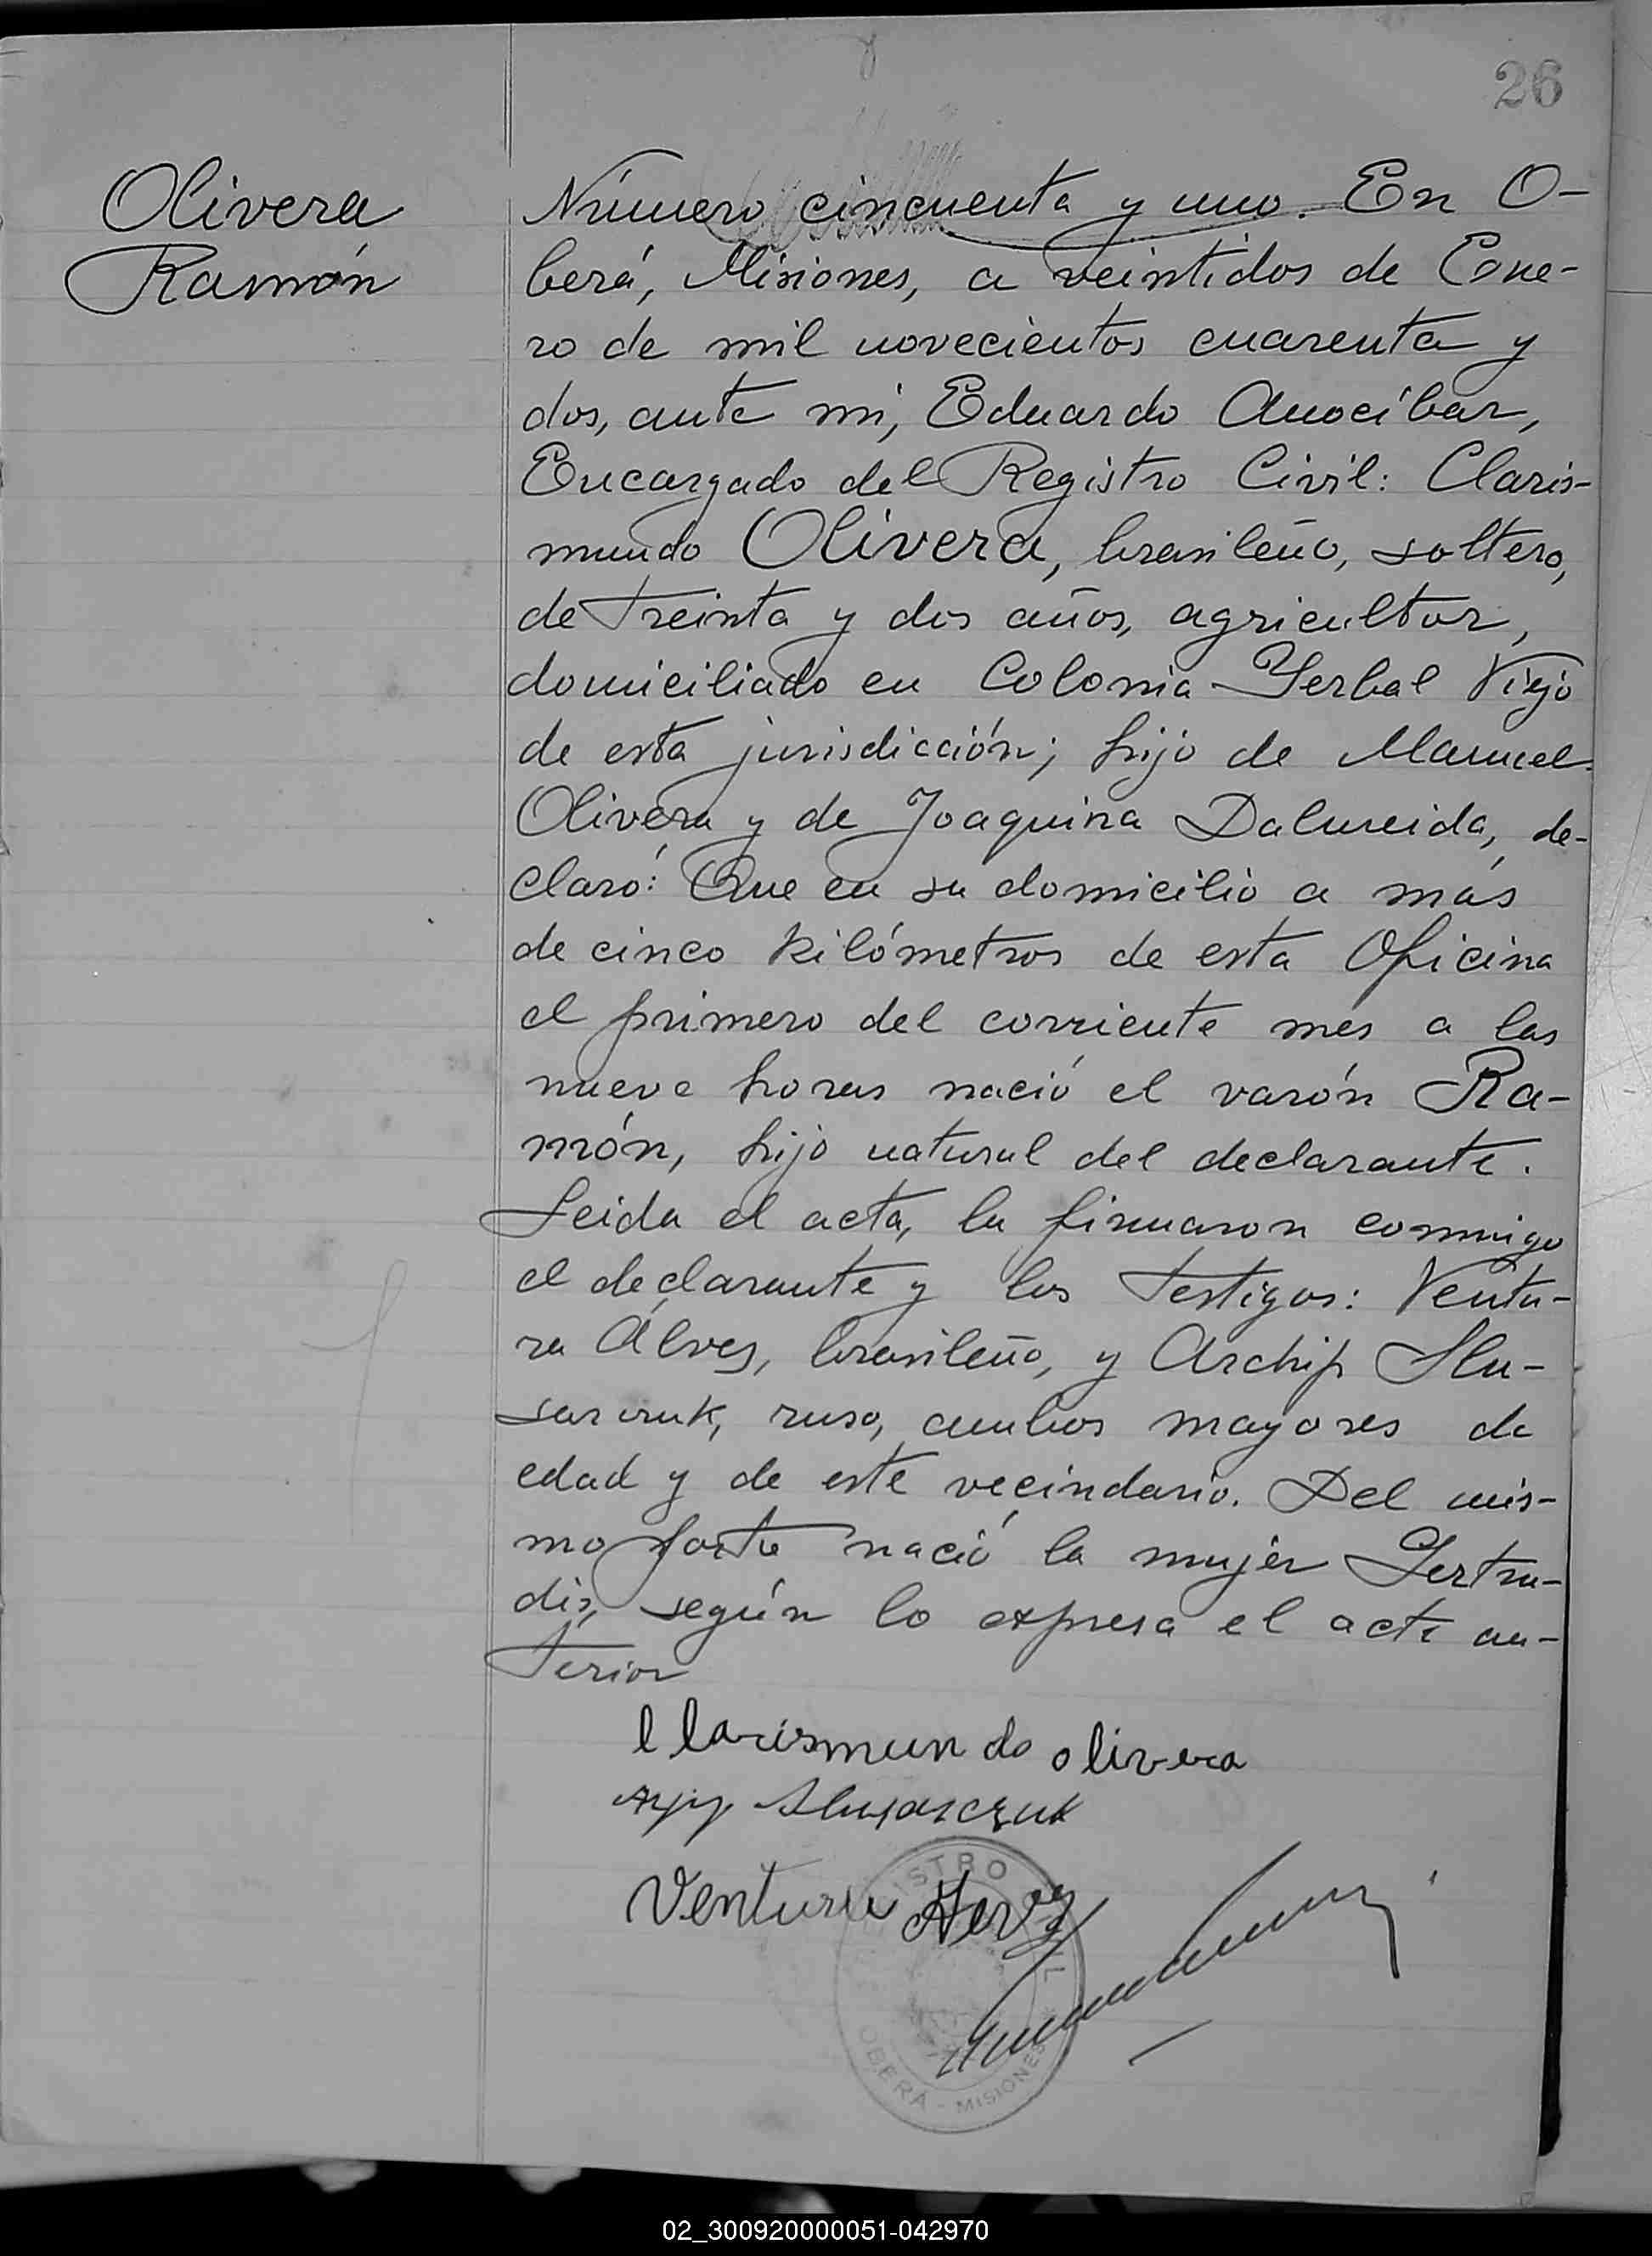 26
Olivera
Ramón
Número cincuenta y uno. En O-
berá, Misiones, a veintidos de Ene-
ro de mil novecientos cuarenta y
dos, ante mi, Eduardo Anocíbar,
Encargado del Registro Civil: Claris-
mundo Olivera, brasileño, soltero,
de treinta y dos años, agricultor,
domiciliado en Colonia Yerbal Viejo
de esta jurisdicción; hijo de Manuel
Olivera y de Joaquina Dalmeida, de-
claró: Que en su domicilio a más
de cinco kilómetros de esta Oficina
el primero del corriente mes a las
nueve horas nació el varón Ra-
món, hijo natural del declarante.
Leida el acta, la firmaron conmigo
el declarante y los testigos: Ventu-
ra Álves, brasileño, y Archip Slu-
sarczuk, ruso, ambos mayores de
edad y de este vecindario. Del mis-
mo parto nació la mujer Gertru-
dis, según lo expresa el acta an-
terior
Clarismundo olivera
Slusarczuk
Ventura Alves
REGISTRO CIVIL
OBERÁ - MISIONES
02_300920000051-042970